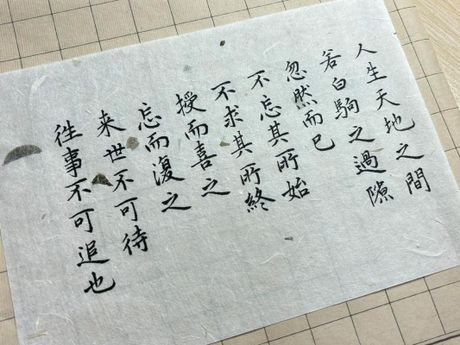 人生天地之間
若白駒之過隙
忽然而已
不忘其所始
不求其所終
授而喜之
忘而復之
来世不可待
往事不可追也